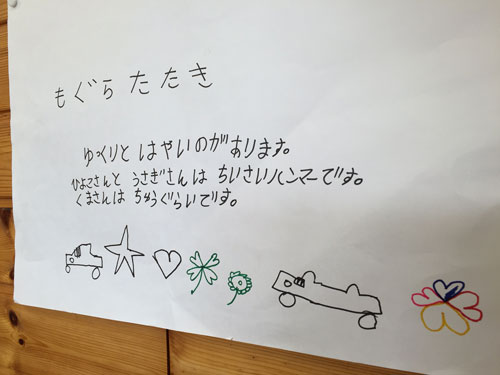 もぐらたたき
ゆっくりと はやいのがあります。
ひよこさんと うさぎさんは ちいさいハンマーです。
くまさんは ちゅうぐらいです。